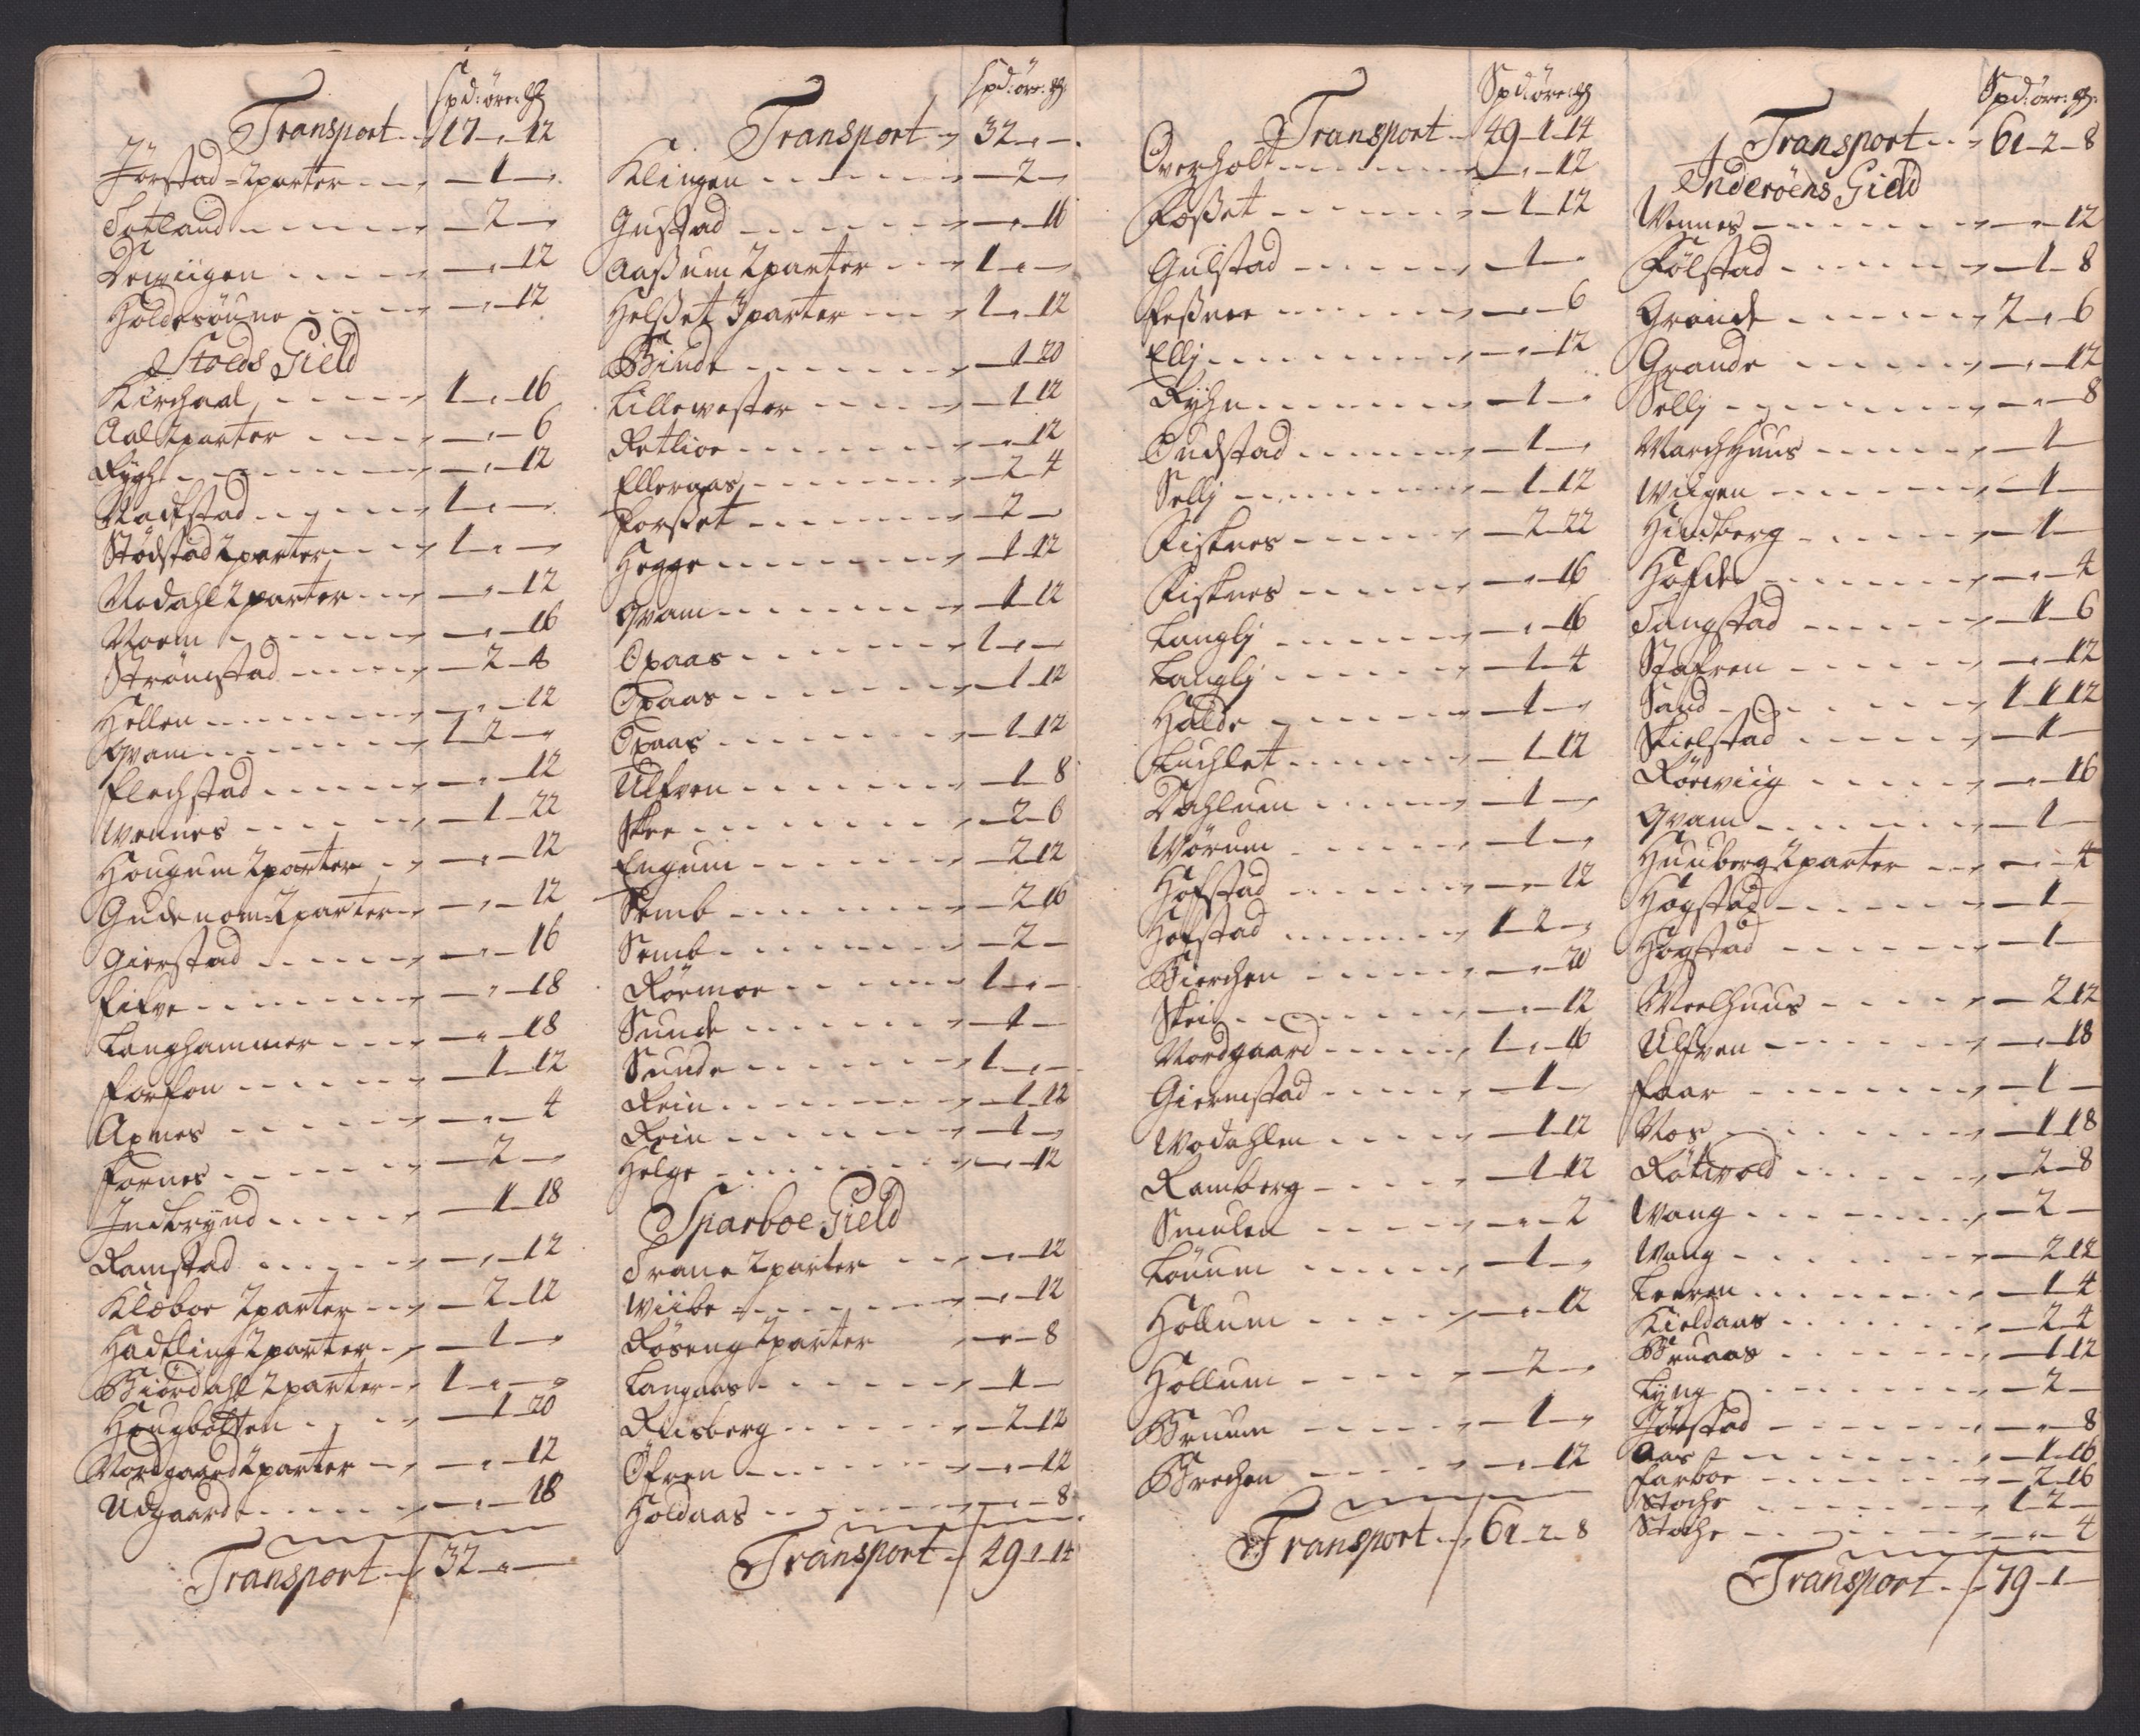 Spd: öre: ₰
Transport - 17 - " - 12
Jörstad = 2parter - - - 1 -
Sotland - - - 2 -
Dewiigen - - - " - 12
Holdesöune - - - " - 12
Stoeds Gield
Kirchaal - - 1 - " - 16
Aal 2parter - - - " - 6
Rygh - - - " - 12
Nachstad - - 1 - " -
Stödstad 2parter - - 1 - " -
Nodahl 2parter - - - " - 12
Noem - - - " - 16
Strömstad - - - 2 - 8
Hellen - - - " - 12
Qvam - - 1 - 2 -
Flechstad - - - " - 12
Wennes - - - 1 - 22
Hougum 2parter - - - " - 12
Gudenom 2parter - - " - 12
Gierstad - - - " - 16
Fifve - - - " - 18
Langhammer - - - " - 18
Forfon - - - 1 - 12
Apnes - - - " - 4
Fornes - - - 2 -
Indbrynd - - - 1 - 18
Ramstad - - - " - 12
Kleboe 2parter - - - 2 - 12
Hadtling 2parter - - - 1 -
Biördahl 2parter - - 1 - " -
Hougbolten - - - 1 - 20
Nordgaard 2parter - - - " - 12
Udgaard - - - " - 18
Transport - 32 - " -
Spd: öre: ₰
Transport - 32 - " -
Klingen - - - 2 -
Gustad - - - " - 16
Aaßum 2parter - - 1 - " -
Helßet 3parter - - 1 - " - 12
Binde - - - 1 - 20
Lillewester - - - 1 - 12
Retlioe - - - " - 12
Elleraas - - - 2 - 4
Forßet - - - 2 -
Hegge - - - 1 - 12
Qvam - - - 1 - 12
Opaas - - 1 - " -
Opaas - - - 1 - 12
Opaas - - - 1 - 12
Ulfven - - - 1 - 8
Skee - - - 2 - 6
Engum - - - 2 - 12
Semb - - - 2 - 16
Semb - - - 2 -
Röemoe - - 1 - " -
Sunde - - - 1 -
Sunde - - 1 - " -
Rein - - - 1 - 12
Rein - - - 1 -
Helge - - - " - 12
Sparboe Gield
Trane 2parter - - - " - 12
Wiibe - - - " - 12
Röseng 2parter - " - 8
Langaas - - - 1 -
Riisberg - - - 2 - 12
Öfren - - - " - 12
Holdaas - - - " - 8
Transport - 49 - 1 - 14
Spd: öre: ₰
Transport - 49 - 1 - 14
Overholt - - - " - 12
Foßet - - - 1 - 12
Gulstad - - - 1 -
Feßnee - - - " - 6
Ellj - - - " - 12
Ryhn - - - 1 -
Oudstad - - - 1 -
Sellj - - - 1 - 12
Fisknes - - - 2 - 22
Fisknes - - - " - 16
Langlj - - - " - 16
Langlj - - - 1 - 4
Halde - - - 1 -
Luchlet - - - 1 - 12
Dahlum - - - 1 -
Wörum - - - 1 -
Hofstad - - - " - 12
Hofstad - - 1 - 2 -
Bierchen - - - " - 20
Skei - - - " - 12
Nordgaard - - 1 - " - 16
Giermstad - - - 1 -
Wodahlen - - - 1 - 12
Ramberg - - - 1 - 12
Smulen - - - " - 2
Löuum - - - 1 -
Hollum - - - " - 12
Hollum - - - 2 -
Bruum - - - 1 -
Brechen - - - " - 12
Transport - 61 - 2 - 8
Spd: öre: ₰
Transport - - 61 - 2 - 8
Inderöens Gield
Wennes - - - " - 12
Fölstad - - - 1 - 8
Grande - - 2 - " - 6
Grande - - - " - 12
Sellj - - - " - 8
Marchhuus - - - 1 -
Wiigen - - - 1 -
Hindberg - - - 1 -
Hofde - - - " - 4
Sangstad - - - 1 - 6
Stafren - - - " - 12
Sand - - 1 - 1 - 12
Skielstad - - - 1 -
Röewiig - - - " - 16
Qvam - - - 1 -
Huuberg 2parter - - - " - 4
Hogstad - - - 1 -
Hogstad - - - 1 -
Meelhuus - - - 2 - 12
Ulfven - - - " - 18
Faar - - - 1 -
Nos - - - 1 - 18
Rötwold - - - 2 - 8
Wang - - - 2 -
Wang - - - 2 - 12
Leeren - - - 1 - 4
Kieldaas - - - 2 - 4
Bruaas - - - 1 - 12
Lyng - - - 2 -
Jörstad - - - " - 8
Aas - - - 1 - 16
Farboe - - - 2 - 16
Stoche - - 1 - 2 -
Stoche - - - " - 4
Transport - - 79 - 1 -